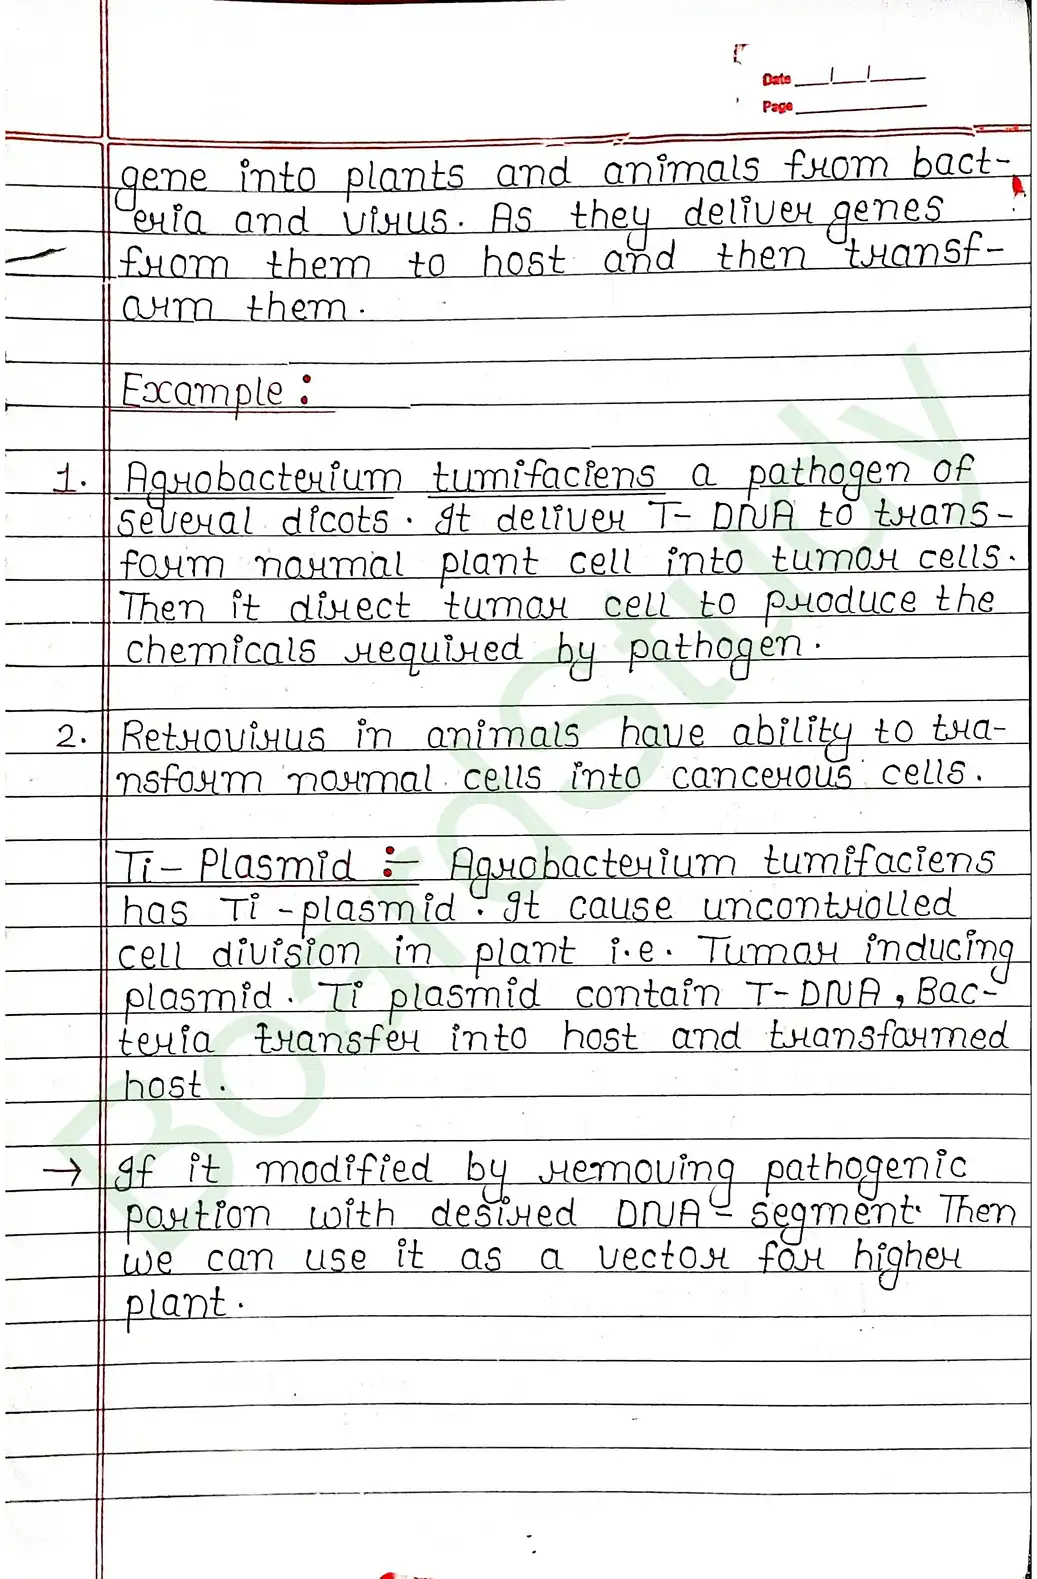 Date
Page
gene into plants and animals from bact-
eria and virus. As they deliver genes
from them to host and then transf-
orm them.
Example :
1. Agrobacterium tumifaciens a pathogen of
several dicots. It deliver T- DNA to trans-
form normal plant cell into tumor cells.
Then it direct tumor cell to produce the
chemicals required by pathogen.
2. Retrovirus in animals have ability to tra-
nsform normal cells into cancerous cells.
Ti- Plasmid :- Agrobacterium tumifaciens
has Ti -plasmid. It cause uncontrolled
cell division in plant i.e. Tumor inducing
plasmid. Ti plasmid contain T-DNA, Bac-
teria transfer into host and transformed
host.
→ If it modified by removing pathogenic
portion with desired DNA - segment. Then
we can use it as a vector for higher
plant.
BoardStudy